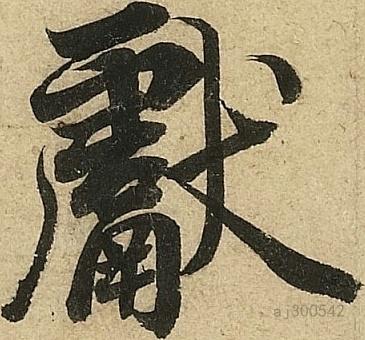 獻
aj300542